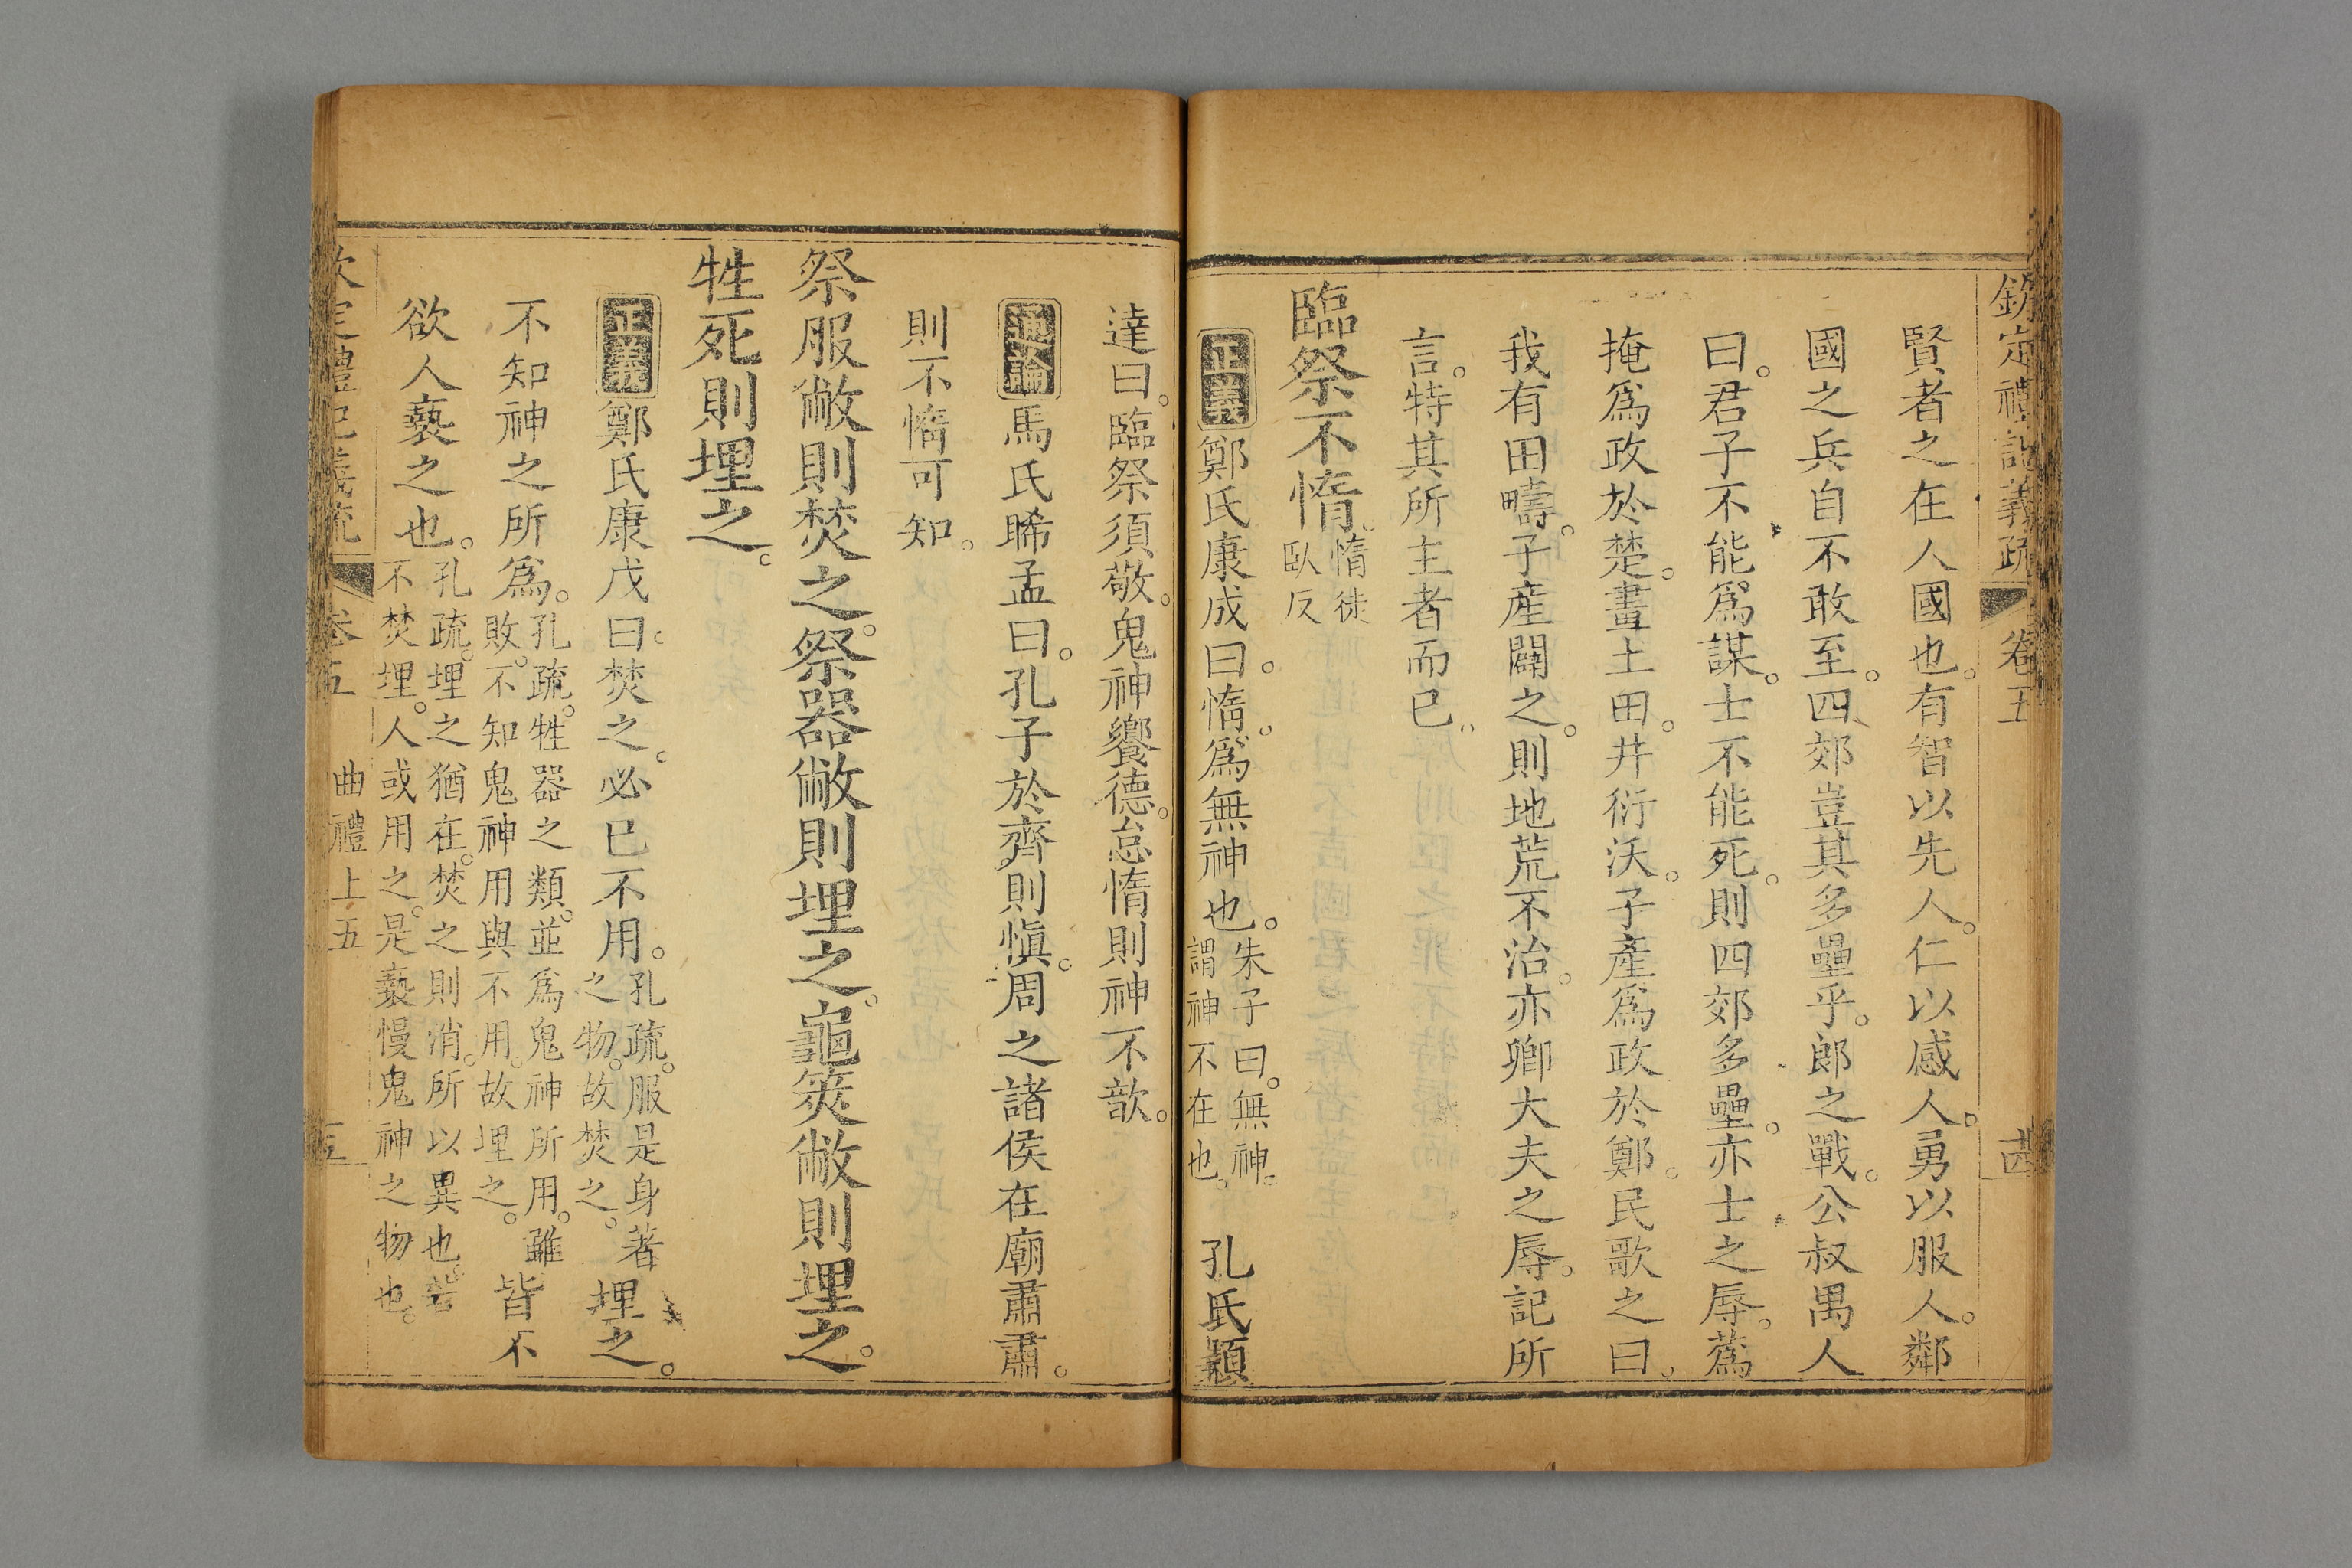 欽定禮記義疏 卷五
賢者之在人國也。有智以先人。仁以感人。勇以服人。鄰
國之兵自不敢至。四郊豈其多壘乎。郎之戰。公叔禺人
曰。君子不能爲謀。士不能死。則四郊多壘。亦士之辱。蒍
掩爲政於楚。畫土田。井衍沃。子產爲政於鄭。民歌之曰。
我有田疇。子產闢之。則地荒不治。亦卿大夫之辱。記所
言。特其所主者而已。
臨祭不惰。惰徒
臥反
正義鄭氏康成曰。惰。爲無神也。朱子曰。無神。
謂神不在也。孔氏穎
達曰。臨祭須敬。鬼神饗德。怠惰則神不歆。
通論馬氏晞孟曰。孔子於齊則慎。周之諸侯在廟肅肅。
則不惰可知。
祭服敝則焚之。祭器敝則埋之。龜筴敝則埋之。
牲死則埋之。
正義鄭氏康戊曰。焚之。必已不用。孔疏。服是身著
之物。故焚之。埋之。
不知神之所爲。孔疏。牲器之類。並爲鬼神所用。雖
敗。不知鬼神用與不用。故埋之。皆不
欲人褻之也。孔疏。埋之猶在。焚之則消。所以異也。若
不焚埋。人或用之。是褻慢鬼神之物也。
欽定禮記義疏 卷五 曲禮上五